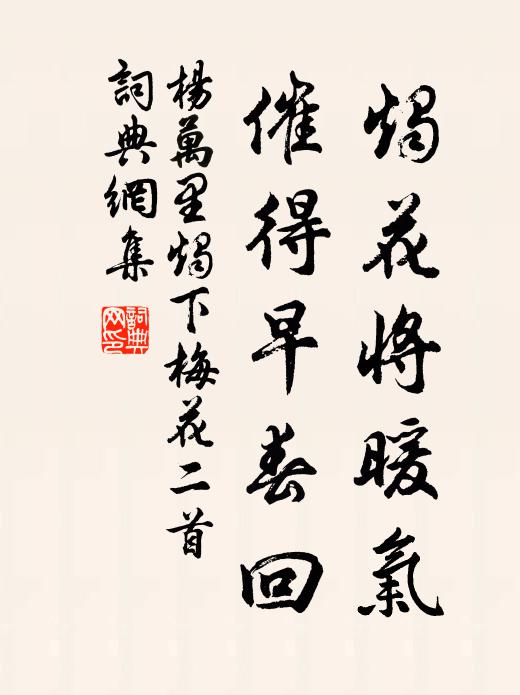 燭花將暖氣
催得早春回
楊萬里燭下梅花二首
詞典網集
詞典網印